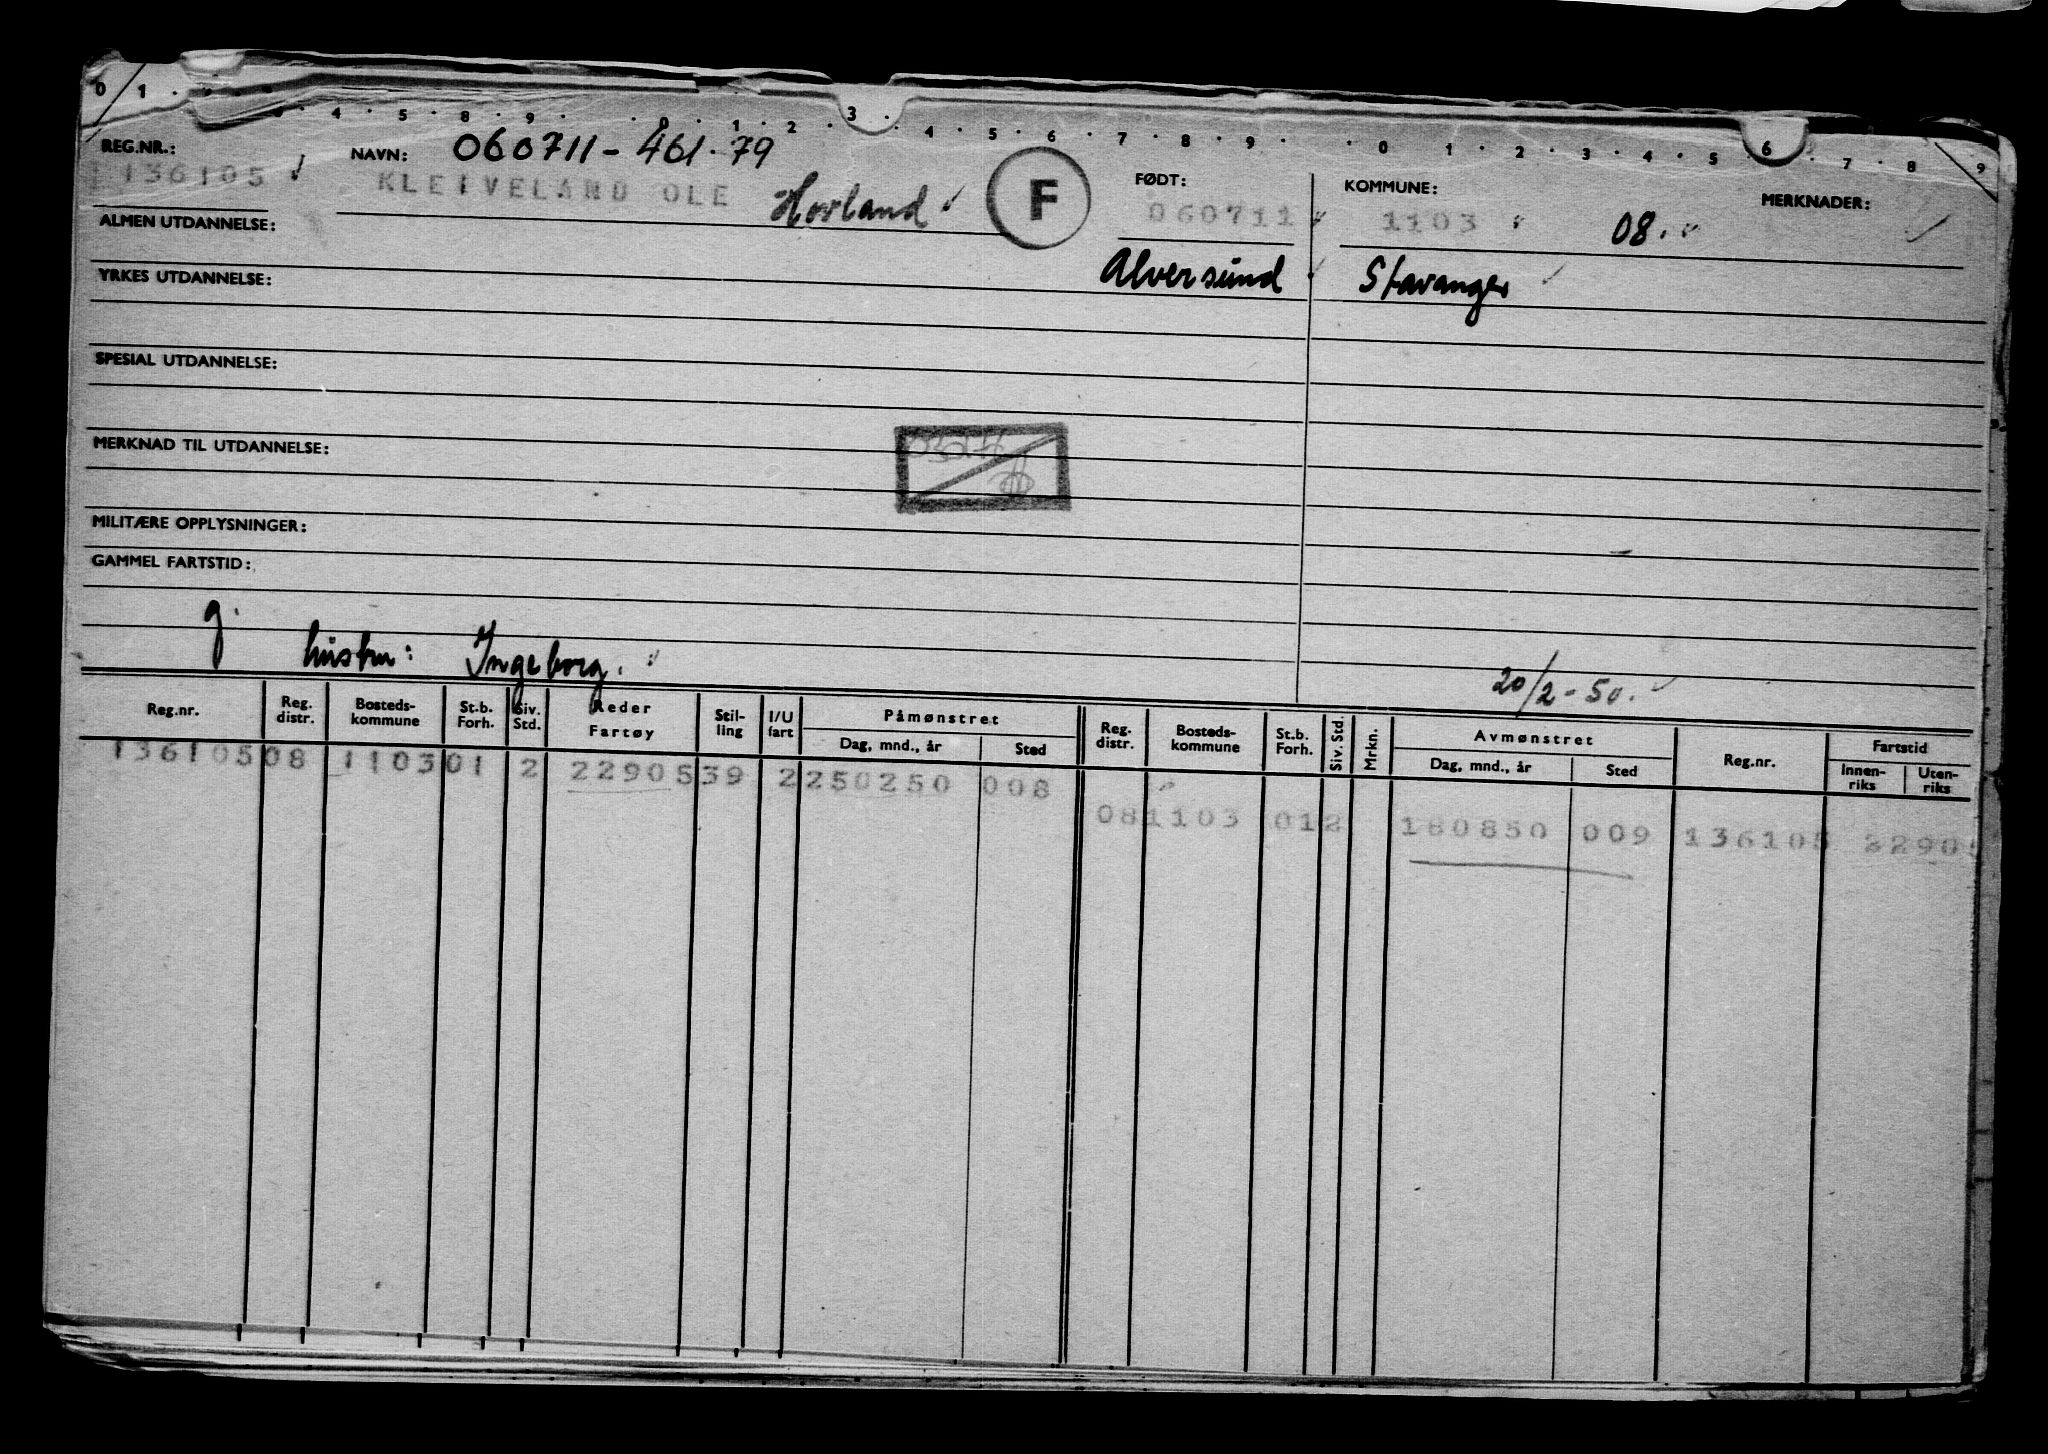 0 1 4 5 8 9 0 1 2 3 4 5 6 7 8 9 0 1 2 3 4 5 6 7 8 9
REG.NR.: NAVN: 060711-461.79 FØDT: KOMMUNE: MERKNADER:
136105 KLEIVELAND OLE Hovland F 060711 1103 08.
ALMEN UTDANNELSE:
Alversund Stavanger
YRKES UTDANNELSE:
SPESIAL UTDANNELSE:
MERKNAD TIL UTDANNELSE:
MILITÆRE OPPLYSNINGER:
GAMMEL FARTSTID:
g.
hustru: Ingeborg.
20/2-50.
Reg.nr. Reg. distr. Bosteds-kommune St.b. Forh. Siv. Std. Reder Fartøy Stil-ling I/U fart Påmønstret Dag, mnd., år Sted Reg. distr. Bosteds-kommune St.b. Forh. Siv. Std. Mrkn. Avmønstret Dag, mnd., år Sted Reg.nr. Fartstid Innen-riks Uten-riks
136105 08 1103 01 2 22905 39 2 250250 008
08 1103 01 2 180850 009 136105 22905